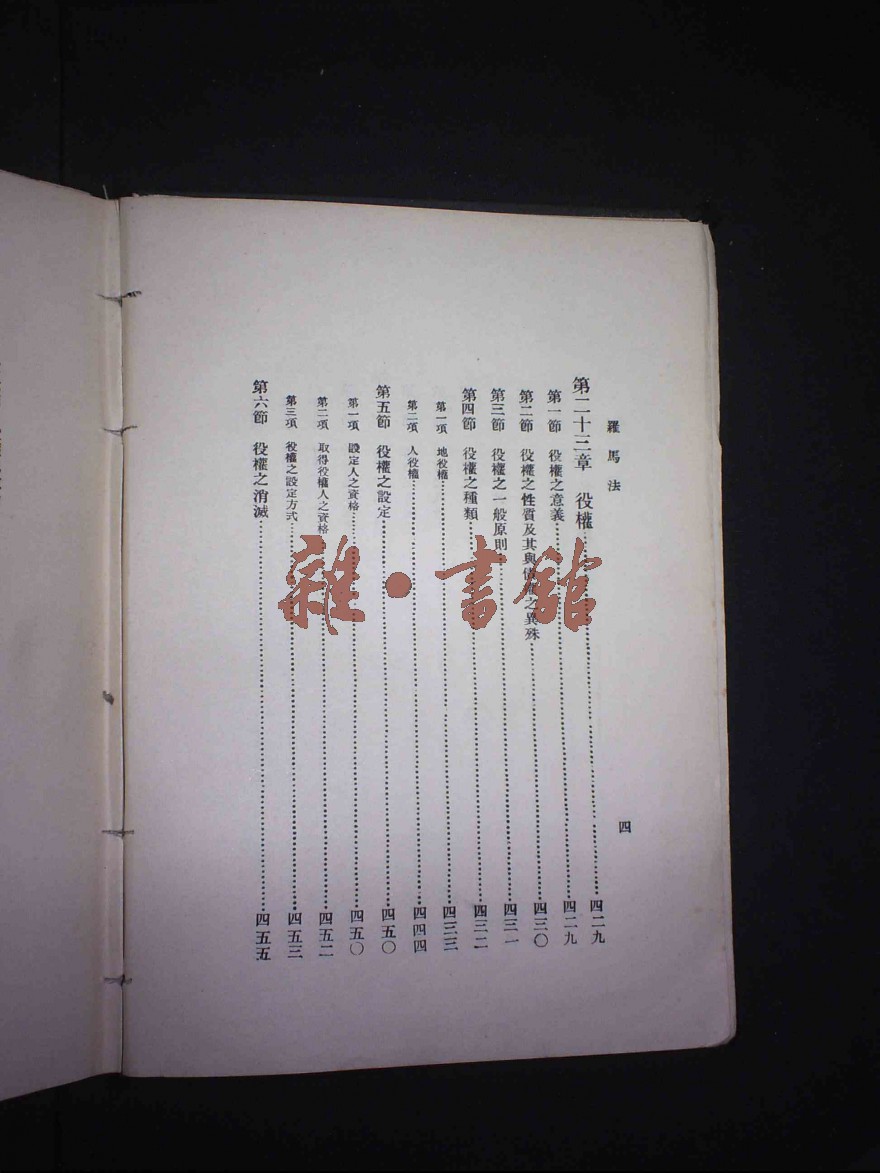 羅馬法
四
第二十三章 役權……四二九
第一節 役權之意義……四二九
第二節 役權之性質及其與債權之異殊……四三〇
第三節 役權之一般原則……四三一
第四節 役權之種類……四三二
第一項 地役權……四三三
第二項 人役權……四四四
第五節 役權之設定……四五〇
第一項 設定人之資格……四五〇
第二項 取得役權人之資格……四五二
第三項 役權之設定方式……四五三
第六節 役權之消滅……四五五
雜·書館